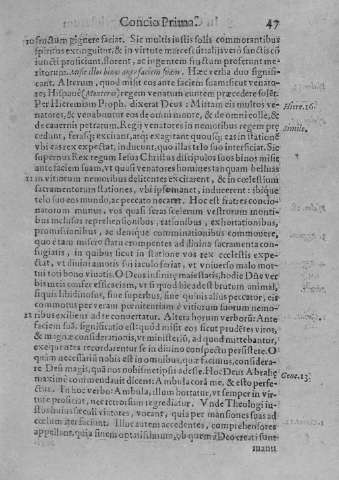 Concio Prima. 47
10 fructum gignere faciat. Sic multis iustis solis commorantibus
spiritus extinguitur, & in virtute
iuncti proficiunt, florent, ac ingentem fructum proferunt me-
ritorum. Misit illos binos ante faciem suam. Hæc verba duo signifi-
cant. Alterum, quod misit eos ante faciem suam sicut venato-
res; Hispanè (Monteros) regem venatum euntem præcedere solēt.
Per Hieremiam Proph. dixerat Deus: Mittam eis multos ve-
natores, & venabuntur eos de omni monte, & de omni colle, & Hiere. 16.
de cauernis petrarum. Regij venatores in nemoribus regem præ
cedunt, ferasq; excitant, atq; exagitant quousq; eas in statione Simile.
vbi eas rex expectat, inducunt, quo illas telo suo interficiat. Sic
supernus Rex regum Iesus Christus discipulos suos binos misit
ante faciem suam, vt quasi venatores homines tanquam belluas
11 in vitiorum nemoribus delitentes excitarent, & in ecclesium
sacramentorum stationes, vbi ipse manet, inducerent: ibique
telo suo eos mundo, ac peccato necaret. Hoc est fratres concio-
natorum munus, vos quasi feras scelerum vestrorum monti-
bus inclusos reprehensionibus, rationibus, exhortationibus,
promissionibus, ac denique comminationibus commouere,
quo è tam misero statu erumpentes ad diuina sacramenta con-
fugiatis, in quibus sicut in statione vos rex cœlestis expe-
ctat, vt diuini amoris sui iaculo feriat, vt vniuerso malo mor-
tui toti bono viuatis. O Deus infinitæ maiestatis, hodie Dñe ver
bis meis confer efficaciam, vt si quod hic adest brutum animal,
siquis libidinosus, siue superbus, siue quiuis alius peccator, eis
commotus per veram pœnitentiam è vitiorum suorum nemo-
12 ribus exiliens ad te conuertatur. Altera horum verborū: Ante
faciem suā: significatio est: quod misit eos sicut prudētes viros,
& magnæ considerationis, vt ministerij, ad quod mittebantur,
exequentes recordarentur se in diuino conspectu persistere. O
quàm necessariū nobis est in omnibus, quæ facimus, considera-
re Dñs magis, quā nos nobismetipsis adesse. Hoc Deus Abrahę
maximè commendauit dicens: Ambula corā me, & esto perfe- Gene. 13.
ctus. In hoc verbo: Ambula, illum hortatur, vt semper in vir-
tute proficiat, nec retrorsum regrediatur. Vnde Theologi iu-
stos huius sæculi viatores, vocant, quia per mansiones suas ad
cœlum iter faciunt. Illuc autem accedentes, comprehensores
appellant, quia finem optatissimum, ob quem à Deo creati sunt
manu